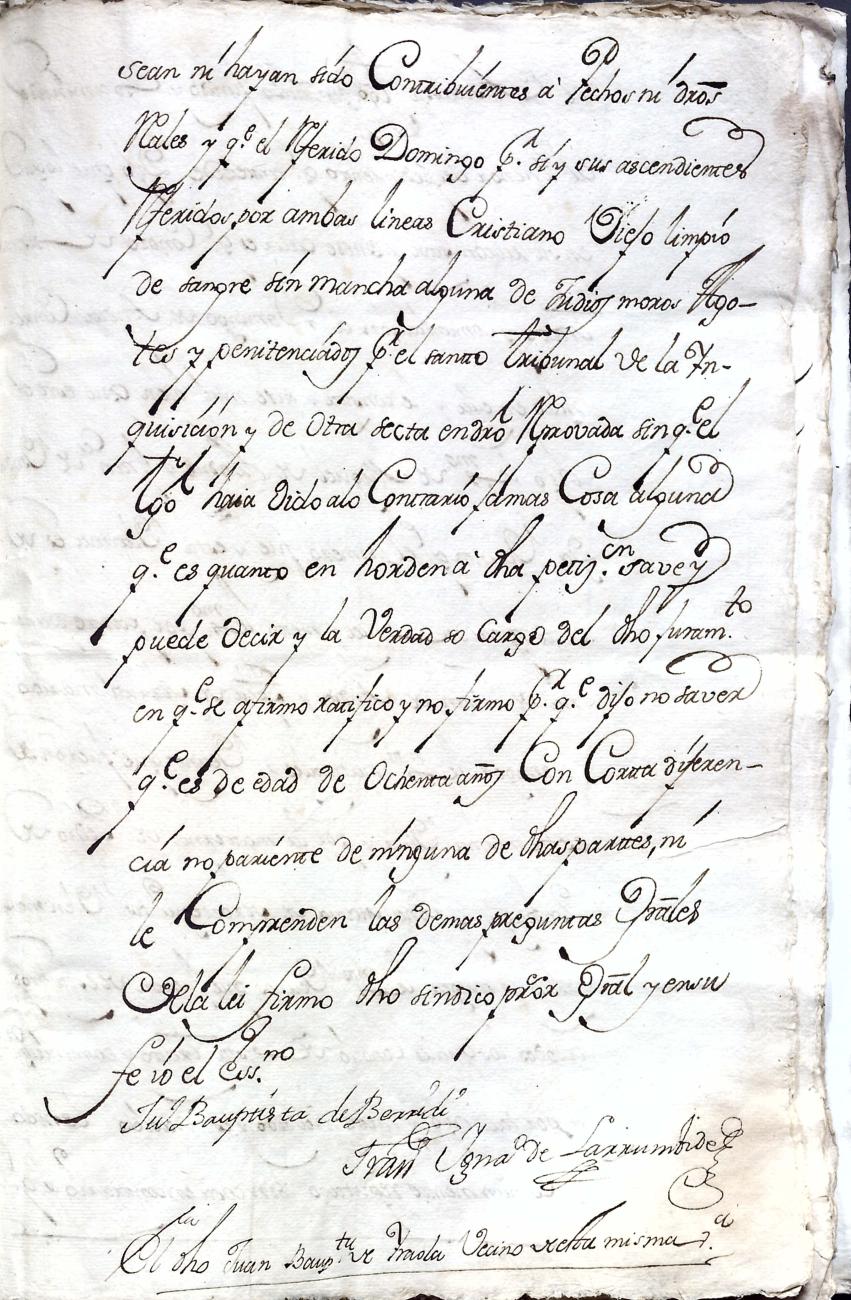 sean ni hayan sido Contribuientes à Pechos ni dros
Rales y q.e el Rferido Domingo p.r si y sus ascendientes
Rferidos por ambas lineas Cristiano Viejo limpio
de sangre sin mancha alguna de Judios moros Ago-
tes y penitenciados p.r el santto tribunal de la In-
quisición y de Otra secta en dro Rprovada sin q.e el
tgo haia oido alo Contrario jamas Cosa alguna
q.e es quanto en horden à dha petiz.en save y
puede decir y la Verdad so Cargo del dho juram.to
en q.e se afirmo ratifico y no firmo p.r q.e dijo no saver
q.e es de edad de Ochenta años Con Corta diferen-
cia no pariente de ninguna de dhas parttes, ni
le Comprenden las demas preguntas Grales
de la lei firmo dho sindico pror Gral y en su
fe io el Ess.no
Ju.o Bauptista de Berridi
Fran.co Igna.o de Larrumbide
El dho Juan Baup.ta de Vecino de esta misma